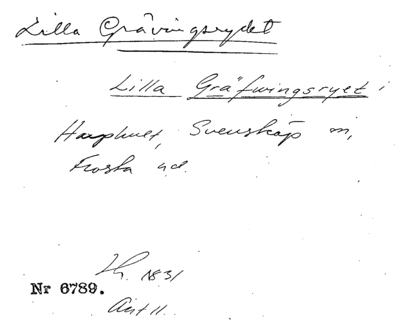 Lilla Grävingsrydet
Lilla Gräfwingsryet i
Harphult, Svensköp sn,
Frosta hd.
Lh. 1831
Nr 6789.
Akt 11.